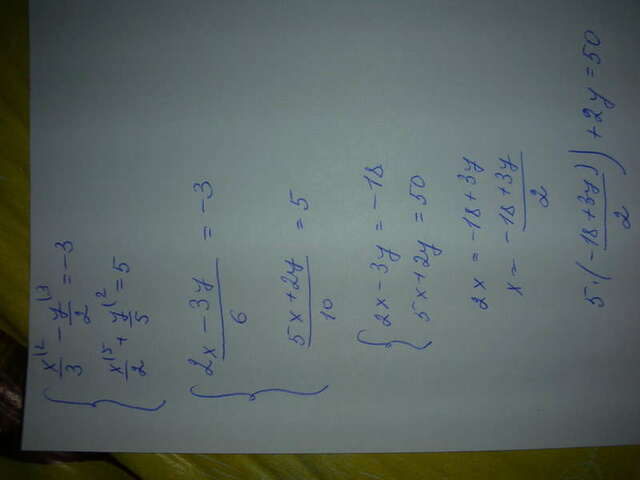 x|2/3 - y|3/2 = -3
x|5/2 + y|2/5 = 5
(2x - 3y)/6 = -3
(5x + 2y)/10 = 5
{ 2x - 3y = -18
5x + 2y = 50
2x = -18 + 3y
x = (-18 + 3y)/2
5·((-18 + 3y)/2) + 2y = 50